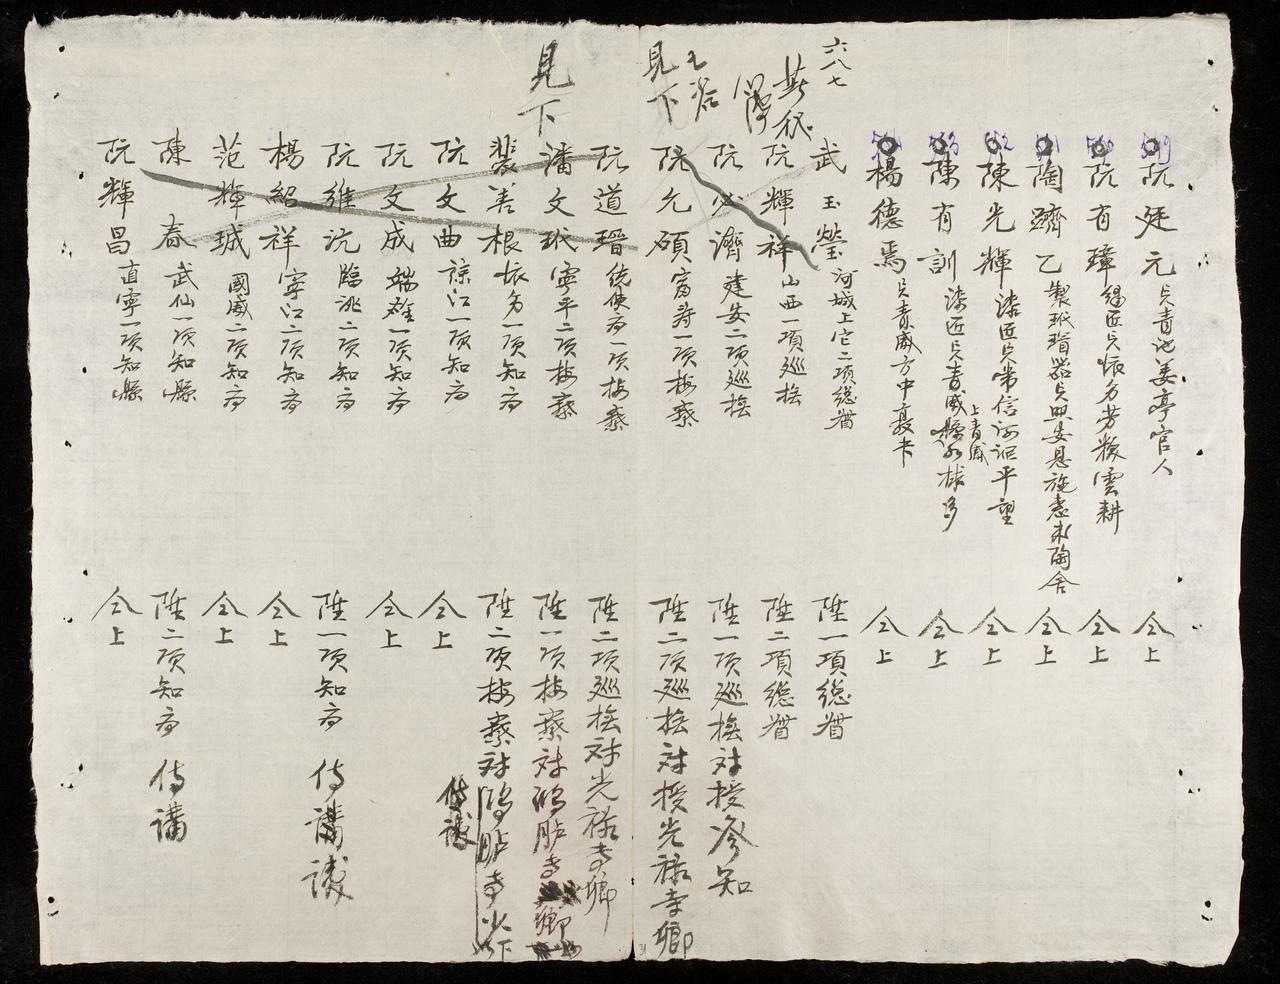 阮廷元 貞青池姜亭官人
仝上
阮有璋 䋲匠貞振多芳粮雲耕
仝上
陶躋乙 製玳瑁器貞興安恩施憲求陶舍
仝上
陳光輝 漆匠貞常信河洄平望
仝上
陳有訓 漆匠貞青威
上青威
仝上
楊德焉 貞青威方中
仝上
六八七
武玉瑩 河城上它二項総督
陞一項総督
阮輝祥 山西一項巡撫
陞二項総督
阮必濟 建安二項巡撫
陞一項巡撫对授參知
見下
阮允碩 富壽一項按察
陞二項巡撫对授光禄寺卿
阮道瑨 統使府一項按察
陞二項巡撫对光禄寺卿
見下
潘文玳 寧平二項按察
陞一項按察对鴻胪寺卿
裴善根 振多一項知府
陞二項按察对鴻胪寺
阮文曲 諒江一項知府
仝上
阮文成 端雄一項知府
仝上
阮維沆 臨洮二項知府
陞一項知府 侍講
楊紹祥 寧江二項知府
仝上
范輝珹 國威二項知府
仝上
陳春 武仙一項知縣
陞二項知府 侍講
阮輝昌 直寧一項知縣
仝上